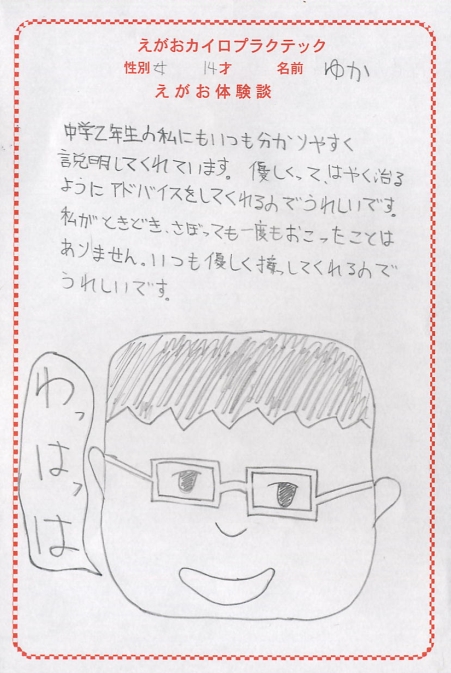 えがおカイロプラクテック
性別 女 14才 名前 ゆか
えがお体験談
中学2年生の私にもいつも分かりやすく
説明してくれています。優しくって、はやく治る
ようにアドバイスをしてくれるのでうれしいです。
私がときどき、さぼっても一度もおこったことは
ありません。いつも優しく接してくれるので
うれしいです。
わっはっは